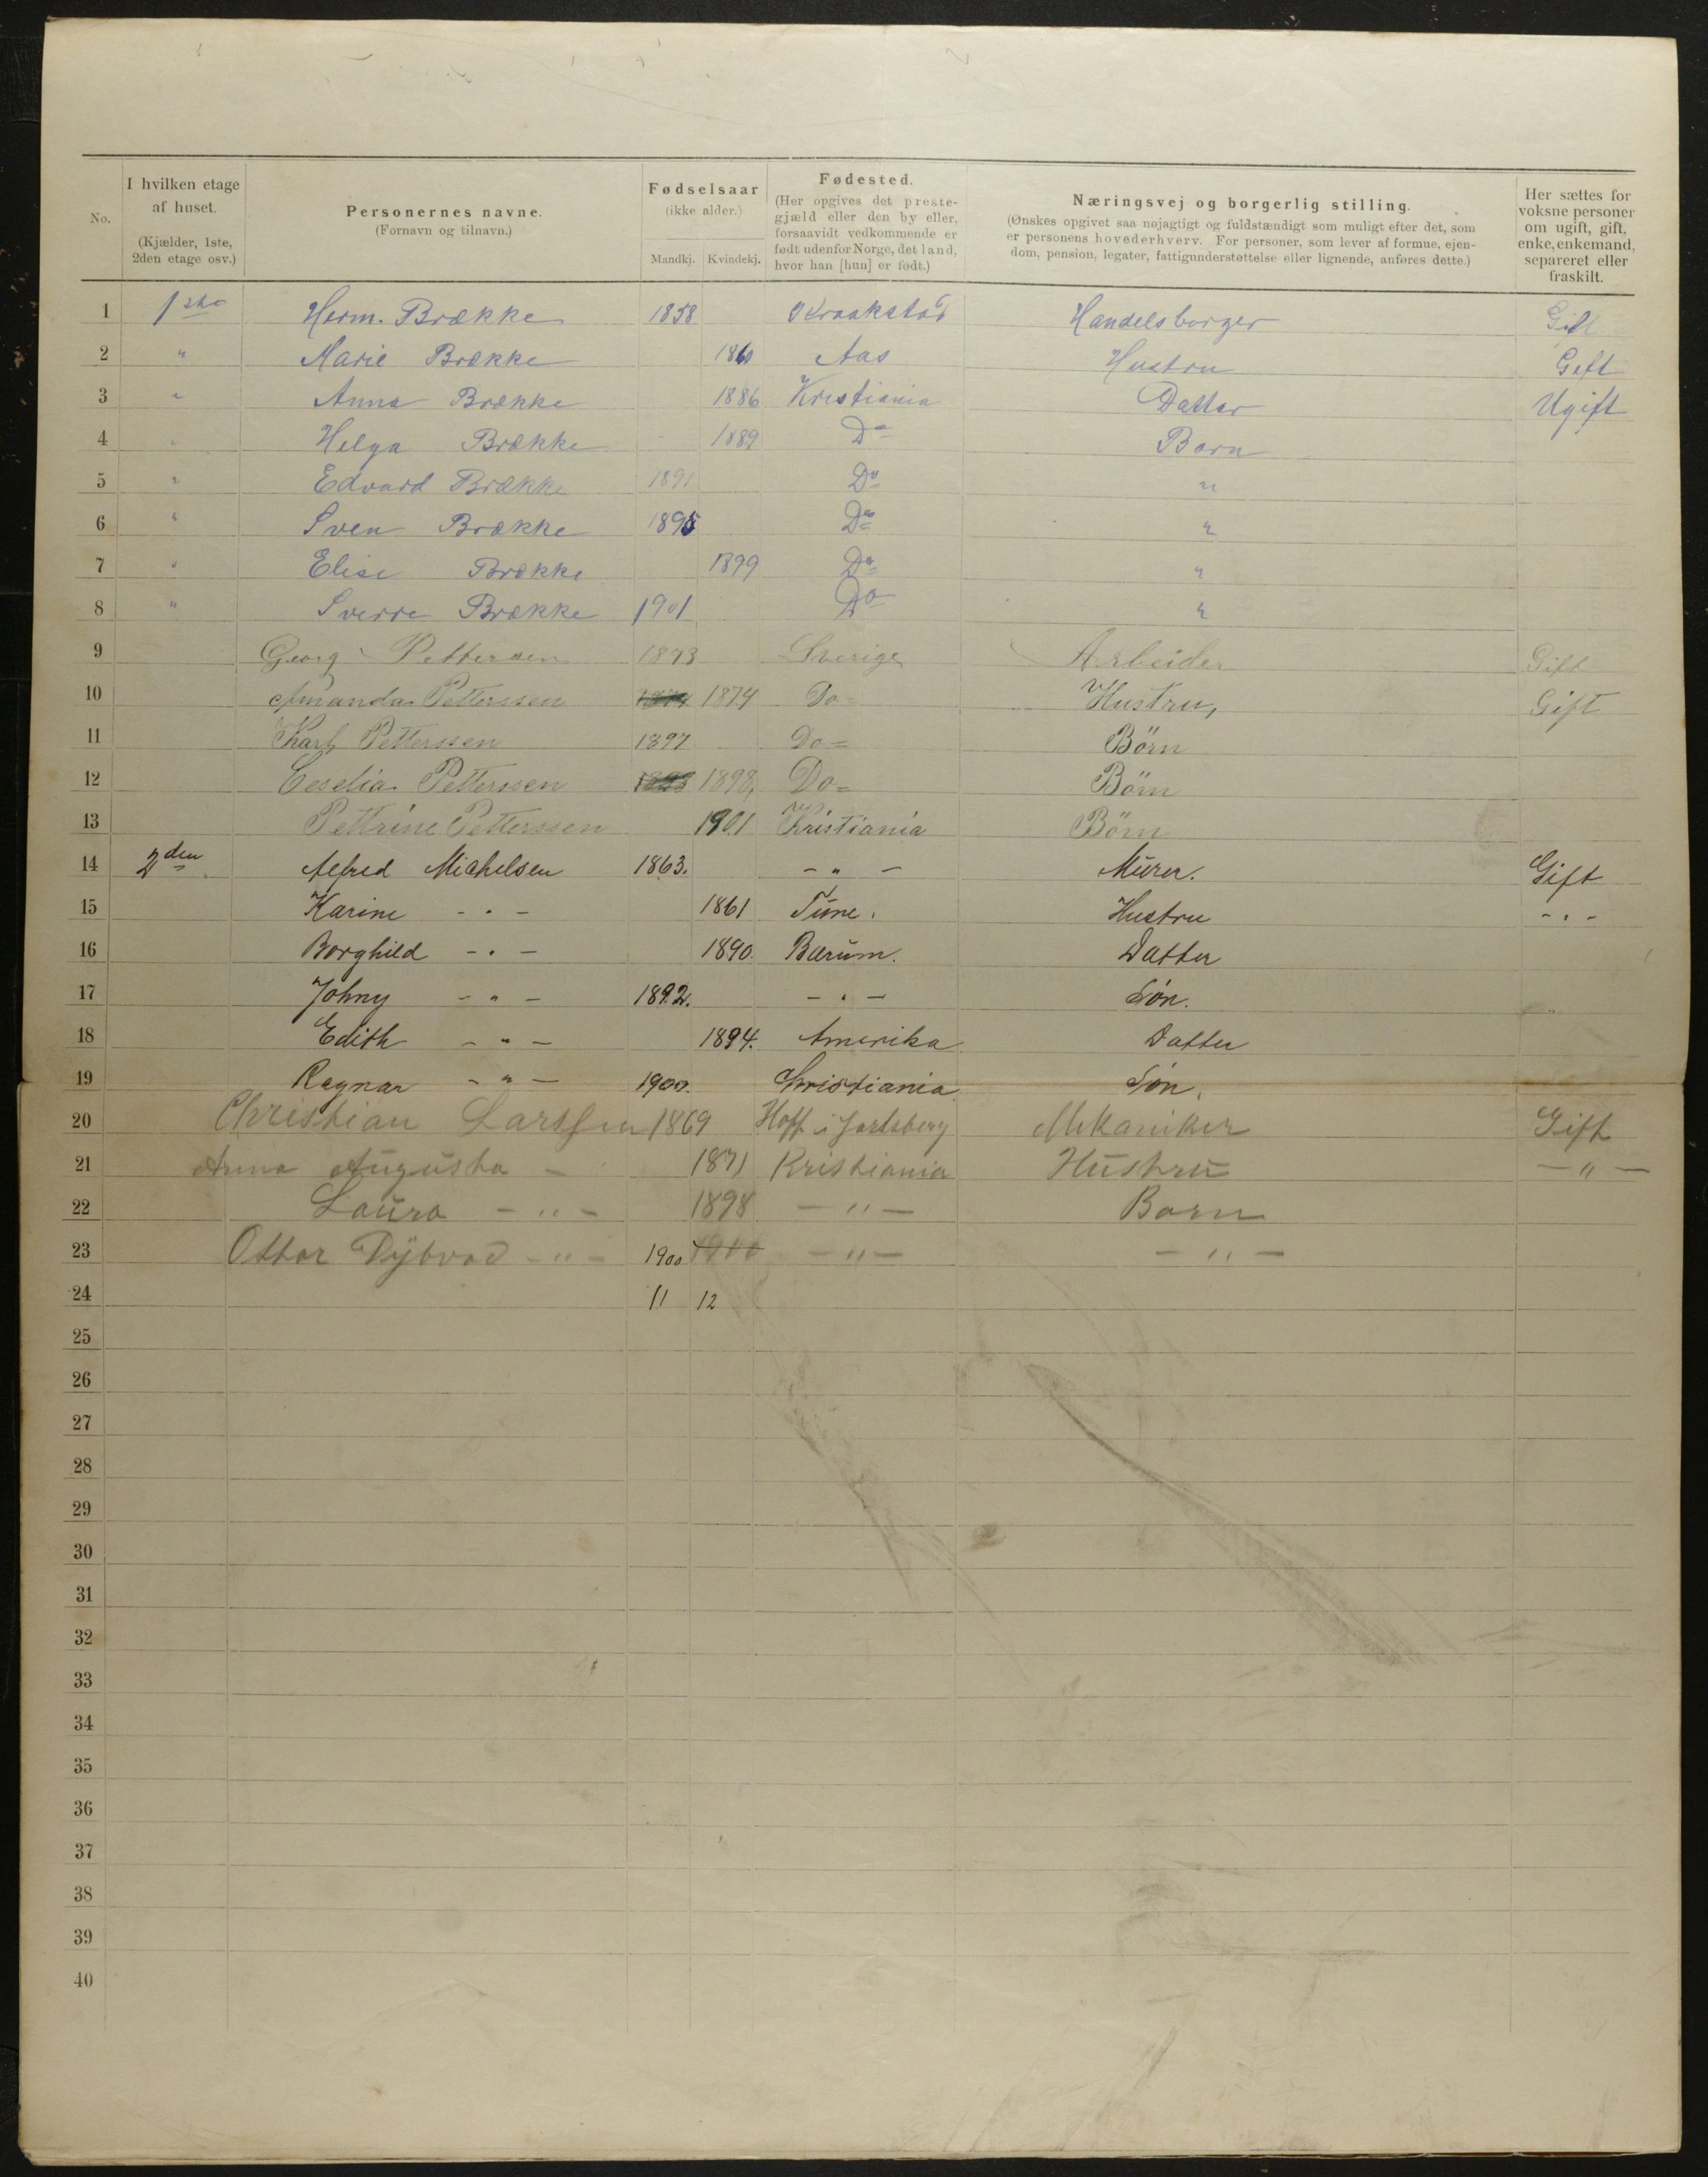 No.
I hvilken etage af huset. (Kjælder, 1ste, 2den etage osv.)
Personernes navne. (Fornavn og tilnavn.)
Fødselsaar (ikke alder.) Mandkj. Kvindekj.
Fødested. (Her opgives det prestegjæld eller den by eller, forsaavidt vedkommende er født udenfor Norge, det land, hvor han [hun] er født.)
Næringsvej og borgerlig stilling. (Ønskes opgivet saa nøjagtigt og fuldstændigt som muligt efter det, som er personens hovederhverv. For personer, som lever af formue, ejendom, pension, legater, fattigunderstøttelse eller lignende, anføres dette.)
Her sættes for voksne personer om ugift, gift, enke, enkemand, separeret eller fraskilt.
1 1ste Herm. Brække 1858 Kraakstad Handelsborger Gift
2 " Marie Brække 1860 Aas Hustru Gift
3 " Anna Brække 1886 Kristiania Datter Ugift
4 " Helga Brække 1889 Do Barn
5 " Edvard Brække 1891 Do "
6 " Sven Brække 1895 Do "
7 " Elise Brække 1899 Do "
8 " Sverre Brække 1901 Do "
9 Georg Pettersen 1873 Sverige Arbeider Gift
10 Amanda Petterssen 1874 Do= Hustru, Gift
11 Karl Petterssen 1897 Do= Börn
12 Ceselia Petterssen 1898, Do= Börn
13 Pettrine Petterssen 1901 Kristiania Börn
14 2den Alfred Michelsen 1863. - " - Murer. Gift
15 Karine - " - 1861 Tune. Hustru - " -
16 Borghild - " - 1890 Bærum. Datter
17 Johny - " - 1892. - " - Søn.
18 Edith - " - 1894. Amerika Datter
19 Ragnar - " - 1900. Christiania Søn.
20 Christian Larssen 1869 Hoff i Jarlsberg Mekaniker Gift
21 Anna Augusta - 1871 Kristiania Hustru - " -
22 Laura - " - 1898 - " - Barn
23 Ottar Dybvad - " - 1900 1900 - " - - " -
24 11 12
25
26
27
28
29
30
31
32
33
34
35
36
37
38
39
40